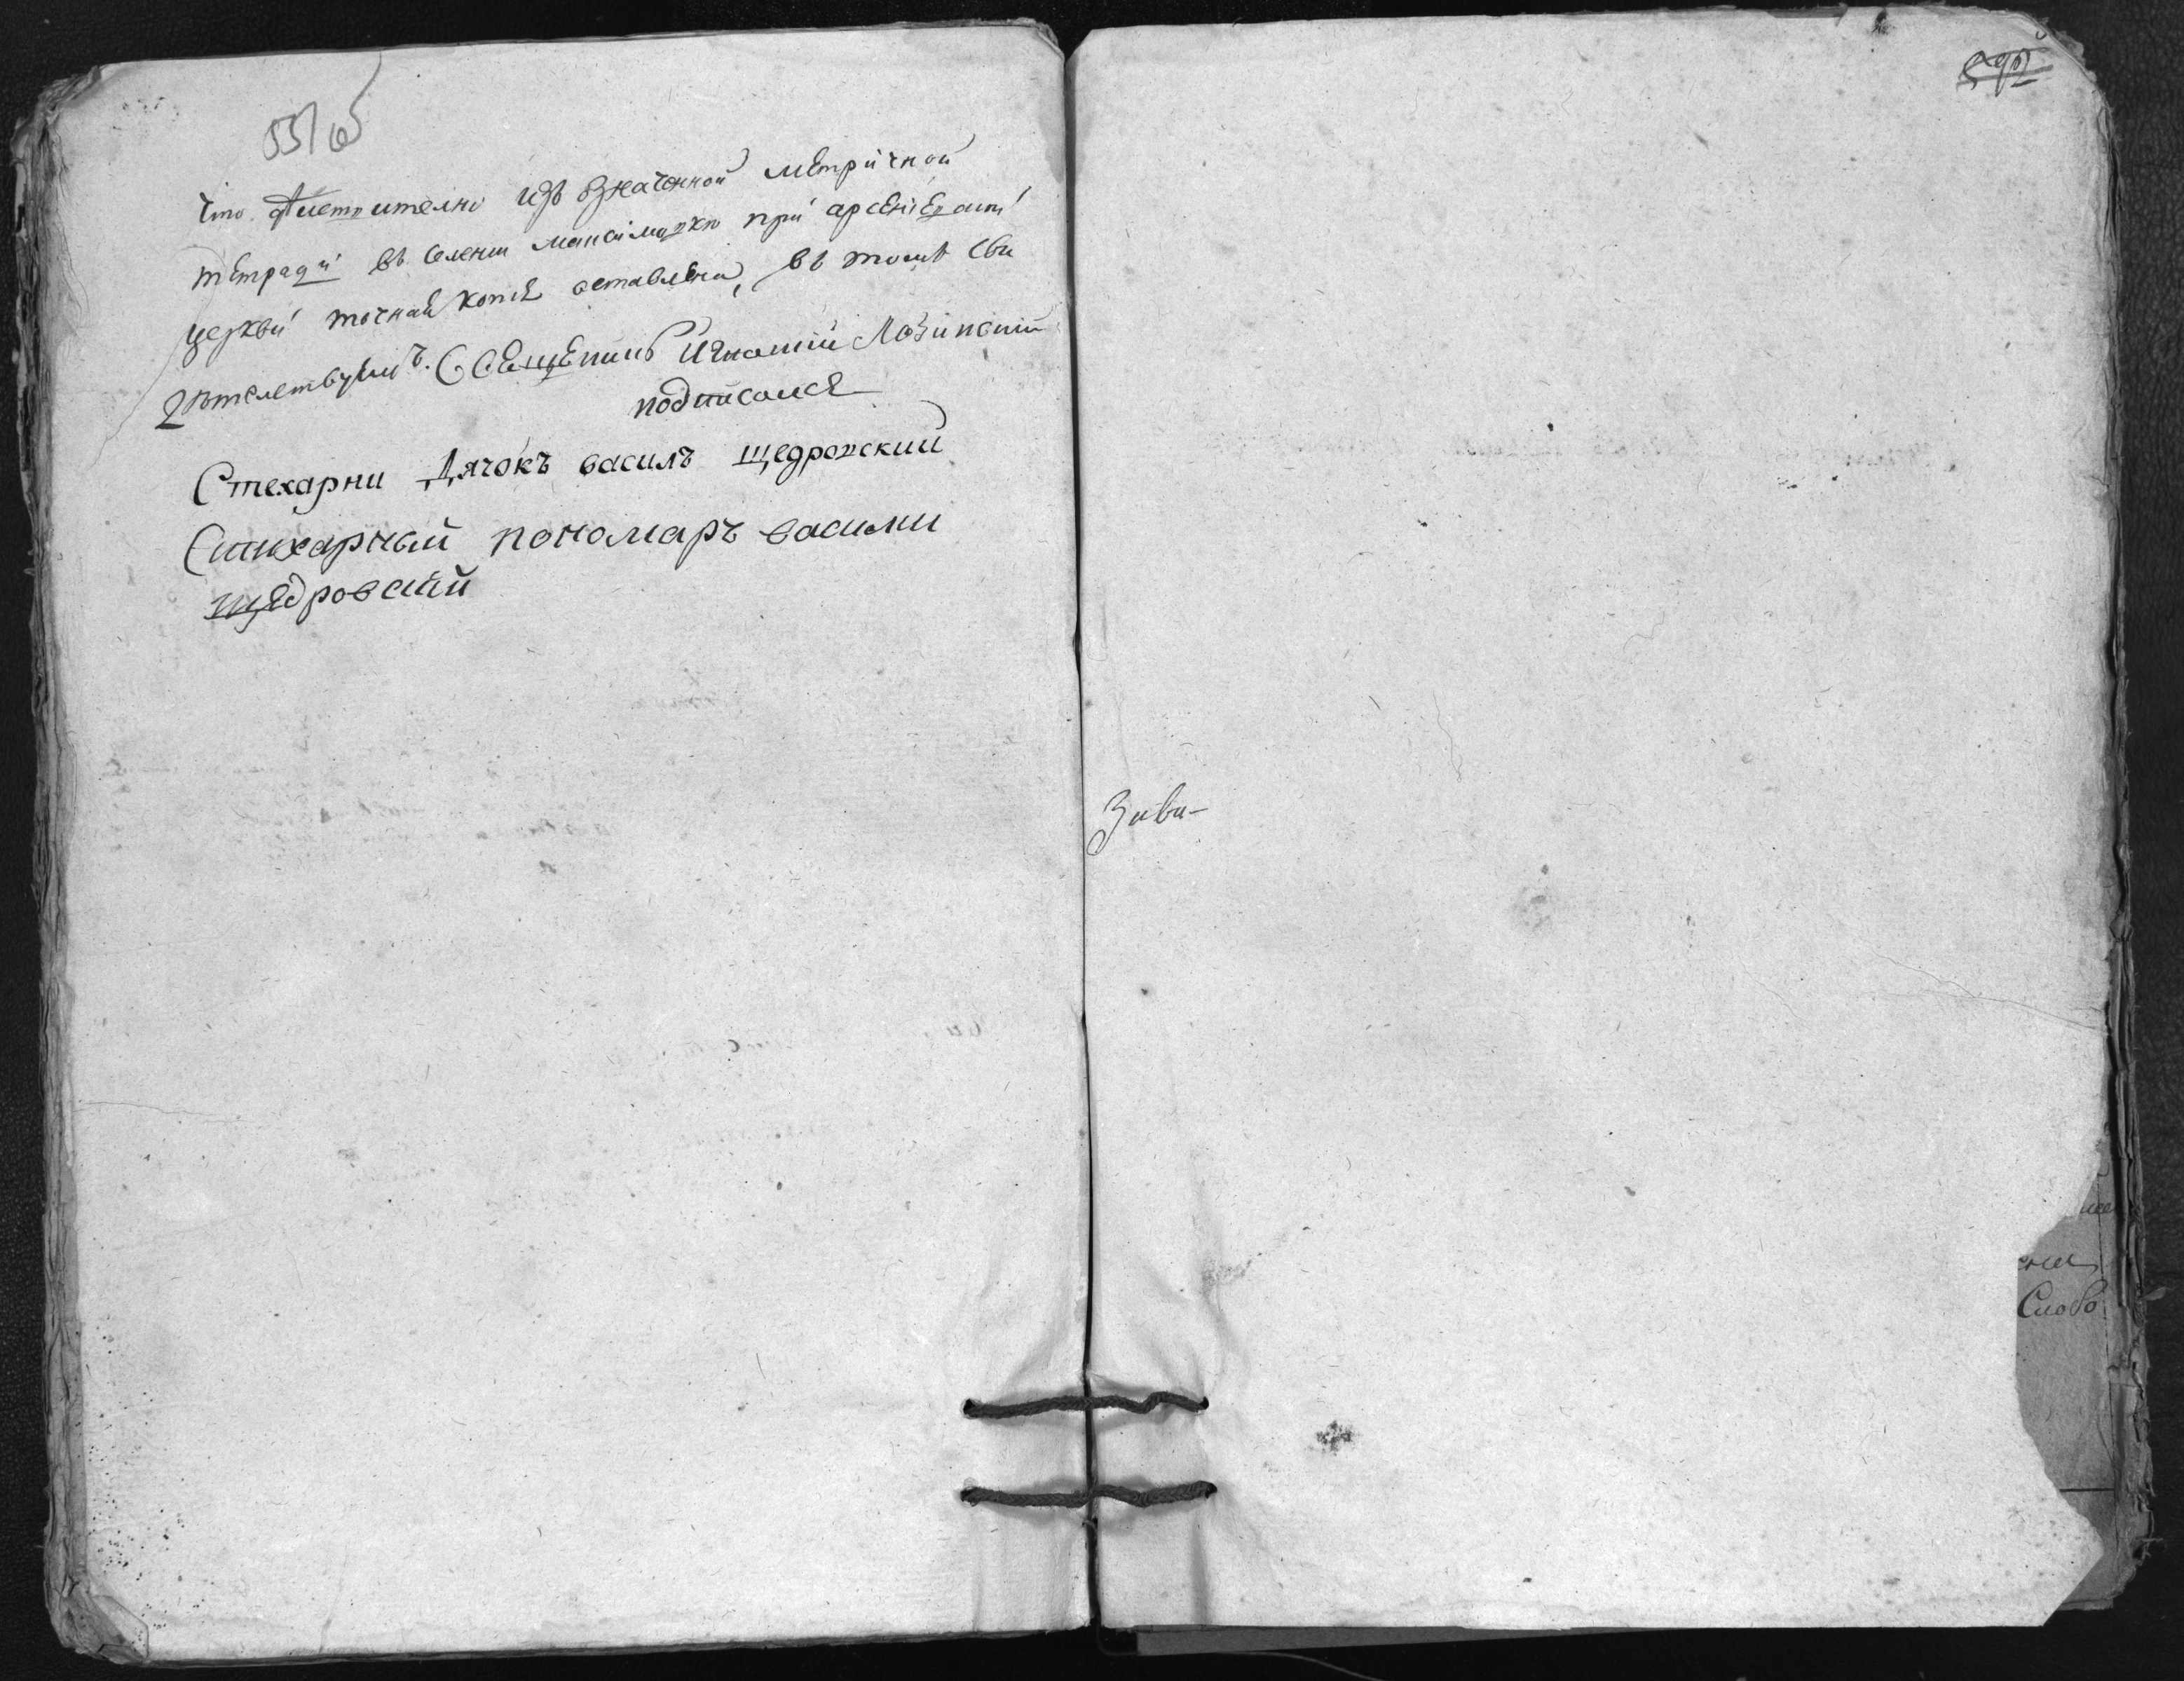 что действително изъ значенной метричной
тетради въ селении Максимовки при арсениевской
церкви точная копия оставлена, въ томъ сви
детелствуемъ. Священикъ Игнатий Лозинский
подписался
Стехарни Дячокъ василъ щедровский
Стихарный пономаръ васили
щедровский